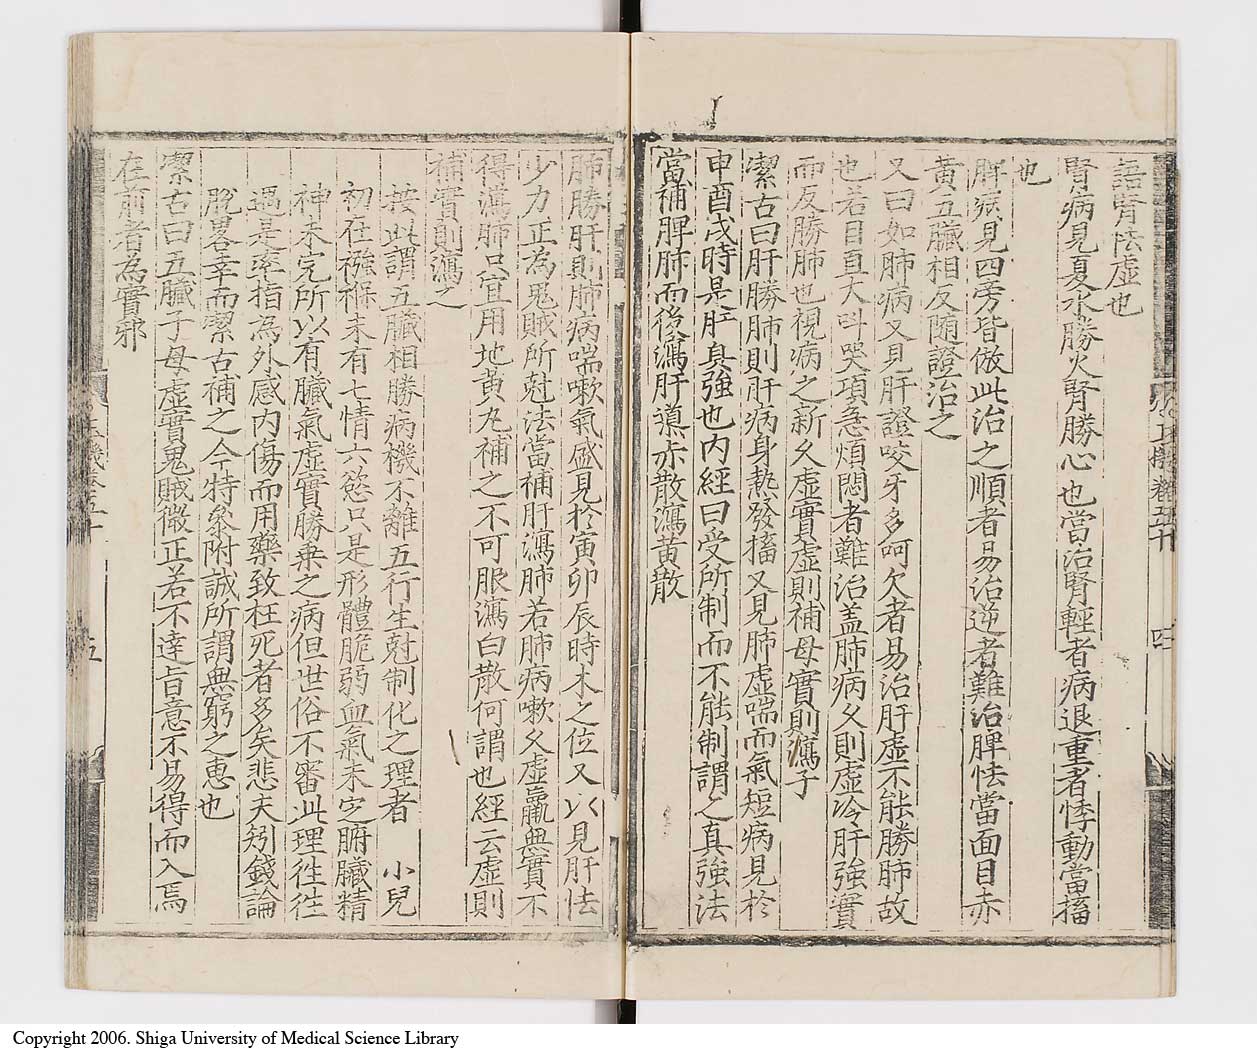 語腎怯虛也
腎病見夏水勝火腎勝心也當治腎輕者病退重者悸動當搐
也
脾病見四旁皆倣此治之順者易治逆者難治脾怯當面目赤
黃五臟相反随證治之
又曰如肺病又見肝證咬牙多呵欠者易治肝虛不能勝肺故
也若目直大叫哭項急煩悶者難治盖肺病久則虛冷肝強實
而反勝肺也視病之新久虛實虛則補母實則瀉子
潔古曰肝勝肺則肝病身熱發搐又見肺虛喘而氣短病見於
申酉戌時是肝真強也内經曰受所制而不能制謂之真強法
當補脾肺而後瀉肝導赤散瀉黃散
肺勝肝則肺病喘嗽氣盛見於寅卯辰時木之位又以見肝怯
少力正為鬼賊所尅法當補肝瀉肺若肺病嗽久虛羸無實不
得瀉肺只宜用地黃丸補之不可服瀉白散何謂也經云虛則
補實則瀉之
按此謂五臟相勝病機不離五行生尅制化之理者 小兒
初在襁褓未有七情六慾只是形體脆弱血氣未定腑臟精
神未完所以有臟氣虛實勝乗之病但世俗不審此理徃徃
遇是率指為外感内傷而用藥致枉死者多矣悲夫矧錢論
脫畧幸而潔古補之今特叅附誠所謂無窮之惠也
潔古曰五臟子母虛實鬼賊微正若不達旨意不易得而入焉
在前者為實邪
四
五